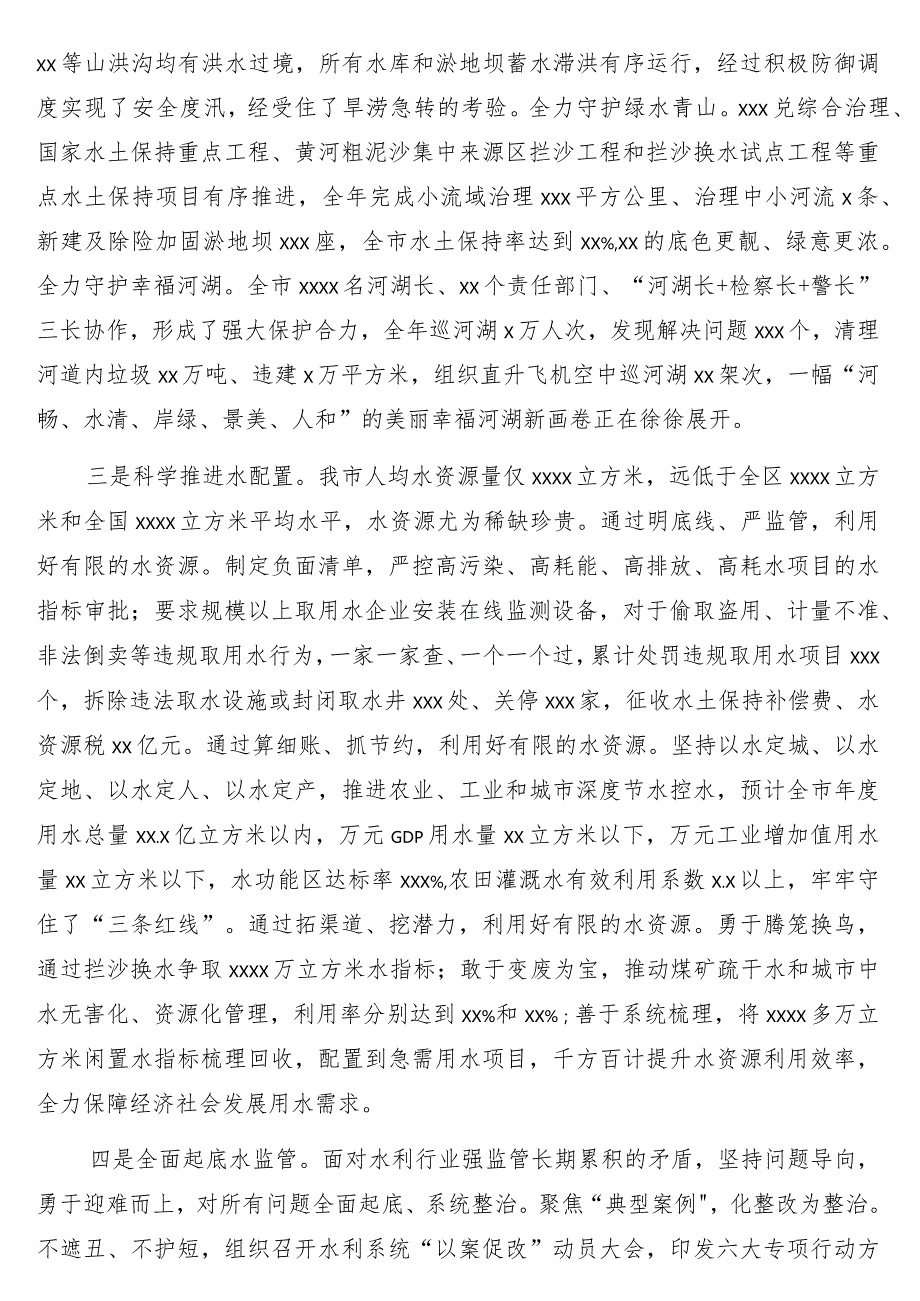 xx等山洪沟均有洪水过境，所有水库和淤地坝蓄水滞洪有序运行，经过积极防御调
度实现了安全度汛，经受住了旱涝急转的考验。全力守护绿水青山。xxx兑综合治理、
国家水土保持重点工程、黄河粗泥沙集中来源区拦沙工程和拦沙换水试点工程等重
点水土保持项目有序推进，全年完成小流域治理xxx平方公里、治理中小河流x条、
新建及除险加固淤地坝xxx座，全市水土保持率达到xx%,xx的底色更靓、绿意更浓。
全力守护幸福河湖。全市xxxx名河湖长、xx个责任部门、“河湖长+检察长+警长”
三长协作，形成了强大保护合力，全年巡河湖x万人次，发现解决问题xxx个，清理
河道内垃圾xx万吨、违建x万平方米，组织直升飞机空中巡河湖xx架次，一幅“河
畅、水清、岸绿、景美、人和”的美丽幸福河湖新画卷正在徐徐展开。
三是科学推进水配置。我市人均水资源量仅xxxx立方米，远低于全区xxxx立方
米和全国xxxx立方米平均水平，水资源尤为稀缺珍贵。通过明底线、严监管，利用
好有限的水资源。制定负面清单，严控高污染、高耗能、高排放、高耗水项目的水
指标审批；要求规模以上取用水企业安装在线监测设备，对于偷取盗用、计量不准、
非法倒卖等违规取用水行为,一家一家查、一个一个过,累计处罚违规取用水项目xxx
个，拆除违法取水设施或封闭取水井xxx处、关停xxx家，征收水土保持补偿费、水
资源税xx亿元。通过算细账、抓节约，利用好有限的水资源。坚持以水定城、以水
定地、以水定人、以水定产，推进农业、工业和城市深度节水控水，预计全市年度
用水总量xx.x亿立方米以内，万元GDP用水量xx立方米以下，万元工业增加值用水
量xx立方米以下，水功能区达标率xxx%,农田灌溉水有效利用系数x.x以上，牢牢守
住了“三条红线”。通过拓渠道、挖潜力，利用好有限的水资源。勇于腾笼换鸟，
通过拦沙换水争取xxxx万立方米水指标；敢于变废为宝，推动煤矿疏干水和城市中
水无害化、资源化管理，利用率分别达到xx%和xx%；善于系统梳理，将xxxx多万立
方米闲置水指标梳理回收，配置到急需用水项目，千方百计提升水资源利用效率，
全力保障经济社会发展用水需求。
四是全面起底水监管。面对水利行业强监管长期累积的矛盾，坚持问题导向，
勇于迎难而上，对所有问题全面起底、系统整治。聚焦“典型案例"，化整改为整治。
不遮丑、不护短，组织召开水利系统“以案促改”动员大会，印发六大专项行动方